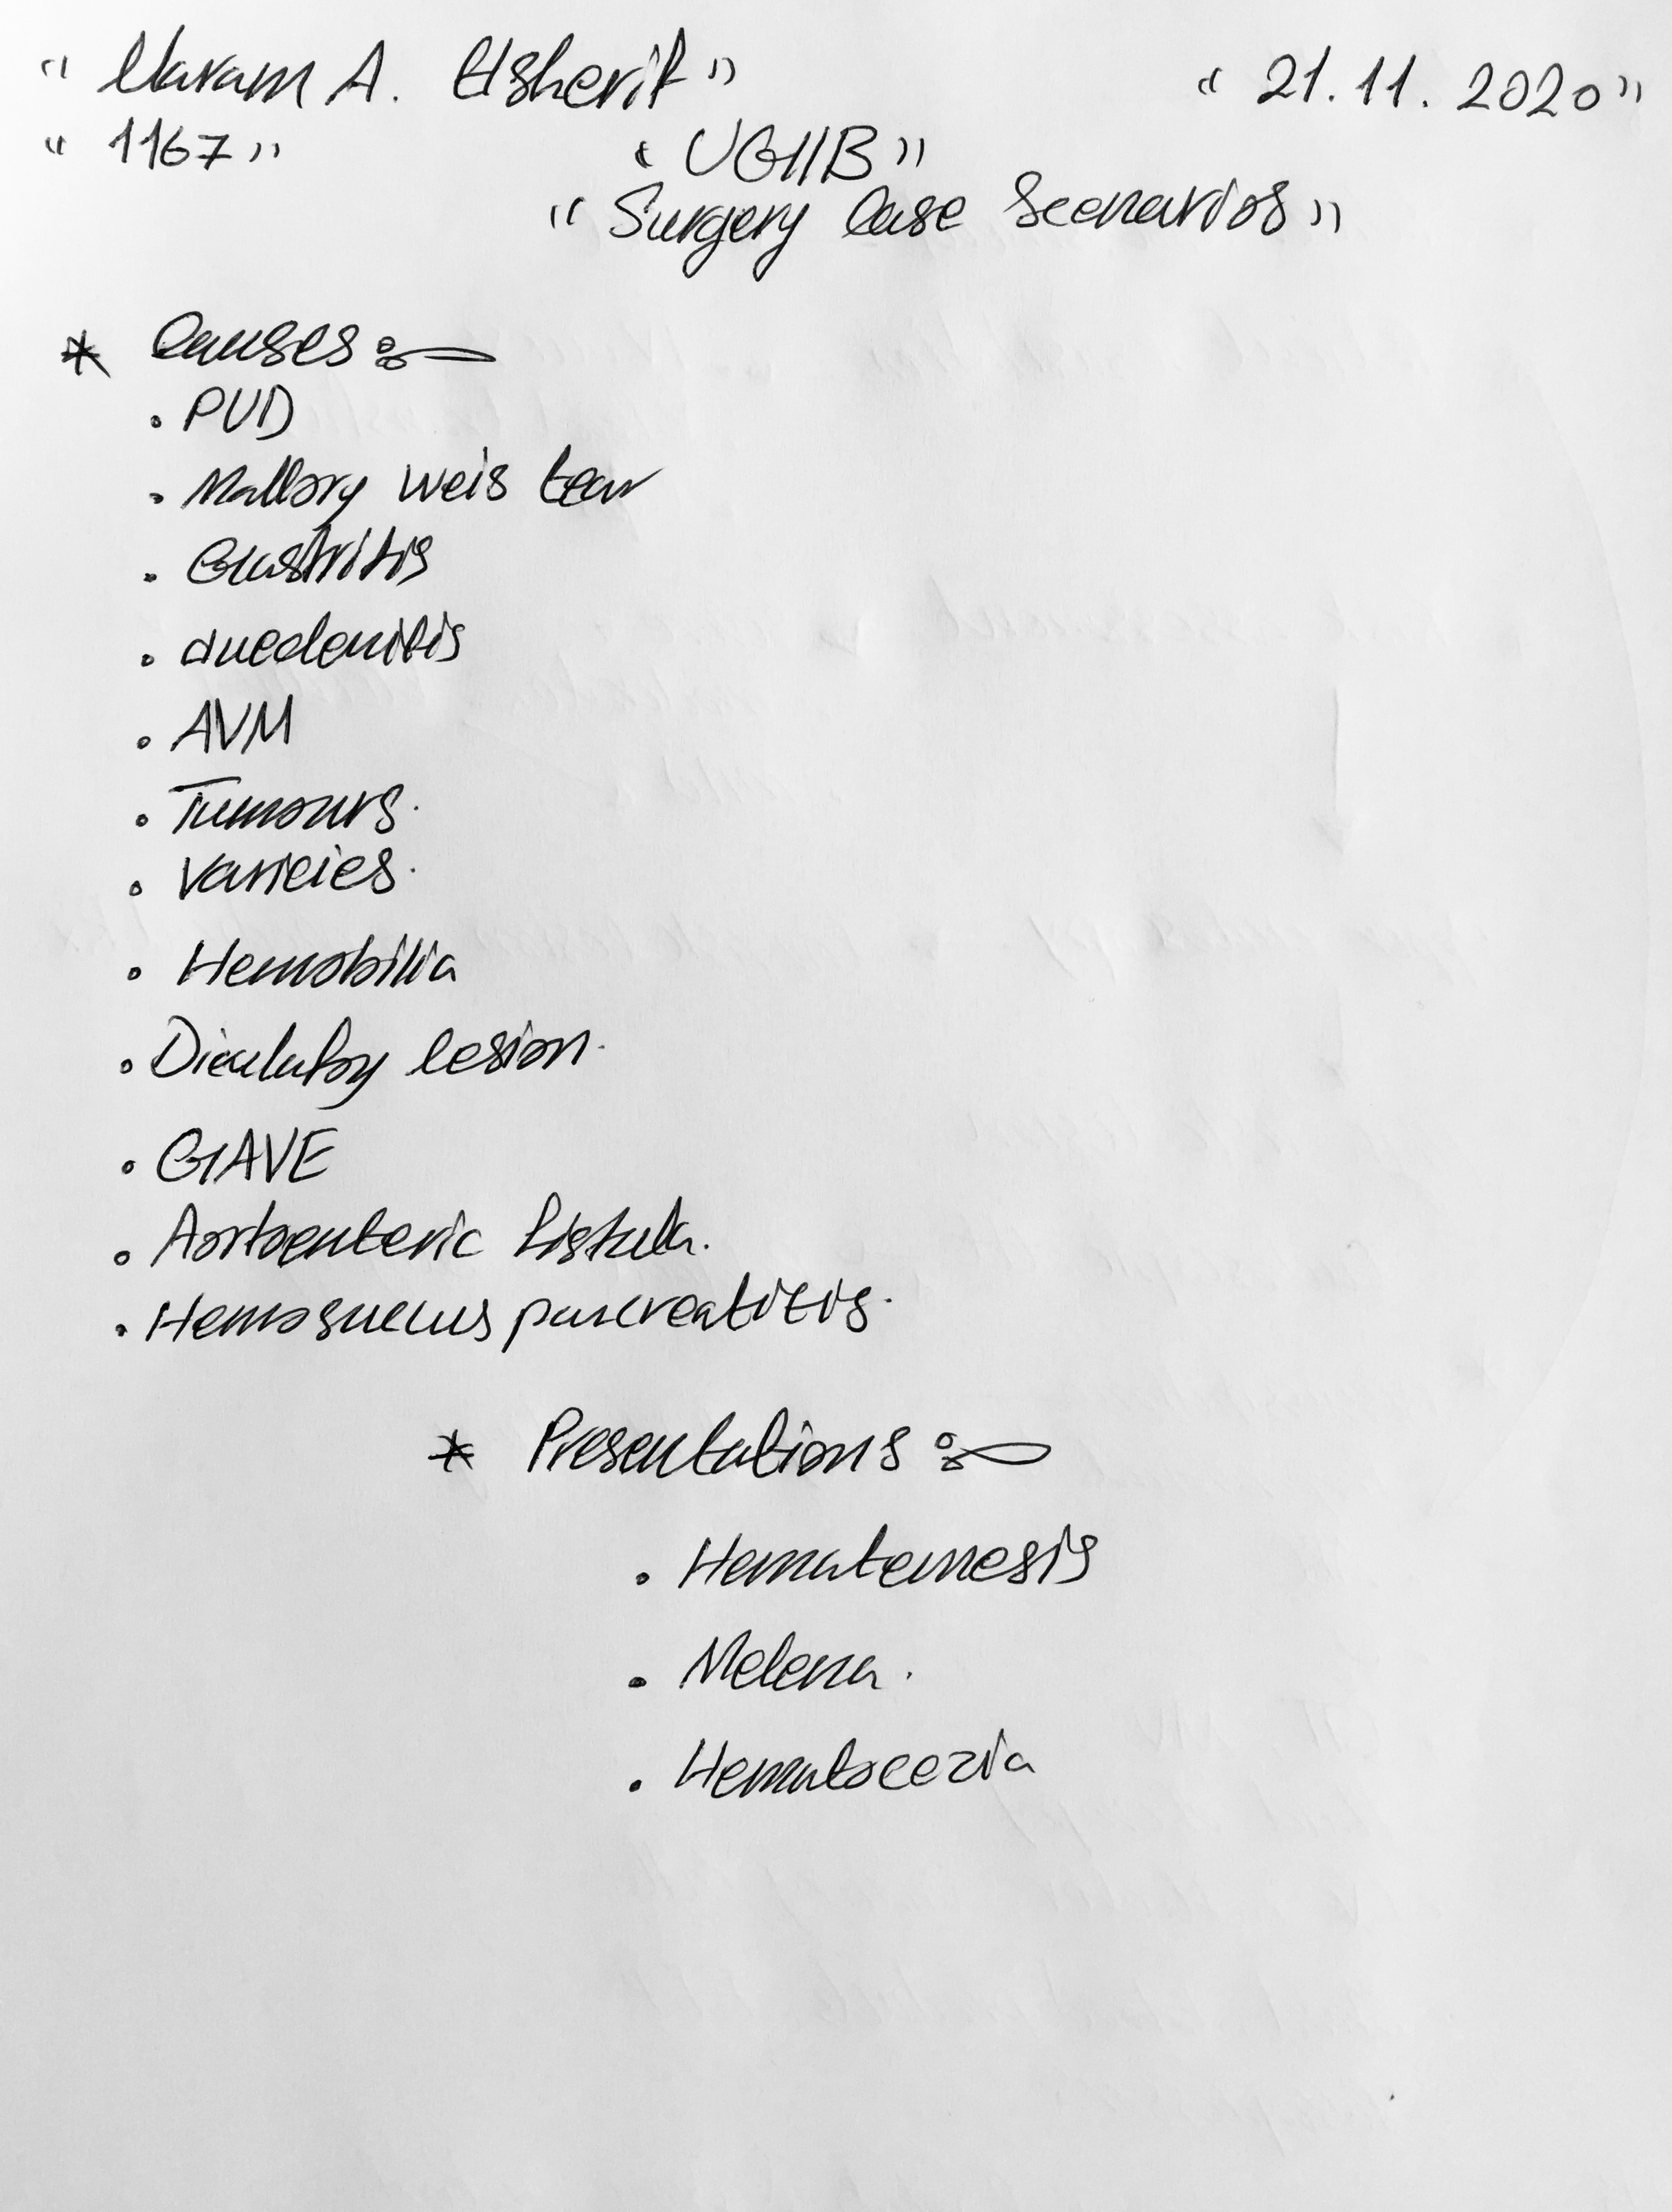 " Maram A. Elsherif " " 21.11.2020 "
" 1167 " " UGIB "
" Surgery Case Scenarios "
* Causes :-
. PUD
. Mallory weis tear
. Gastritis
. duedenitis
. AVM
. Tumours.
. Varicies.
. Hemobilia
. Dieulafoy lesion.
. GAVE
. Aortoenteric fistula.
. Hemosuccus pancreatitis.
* Presentations :-
. Hematemesis
. Melena.
. Hematocezia